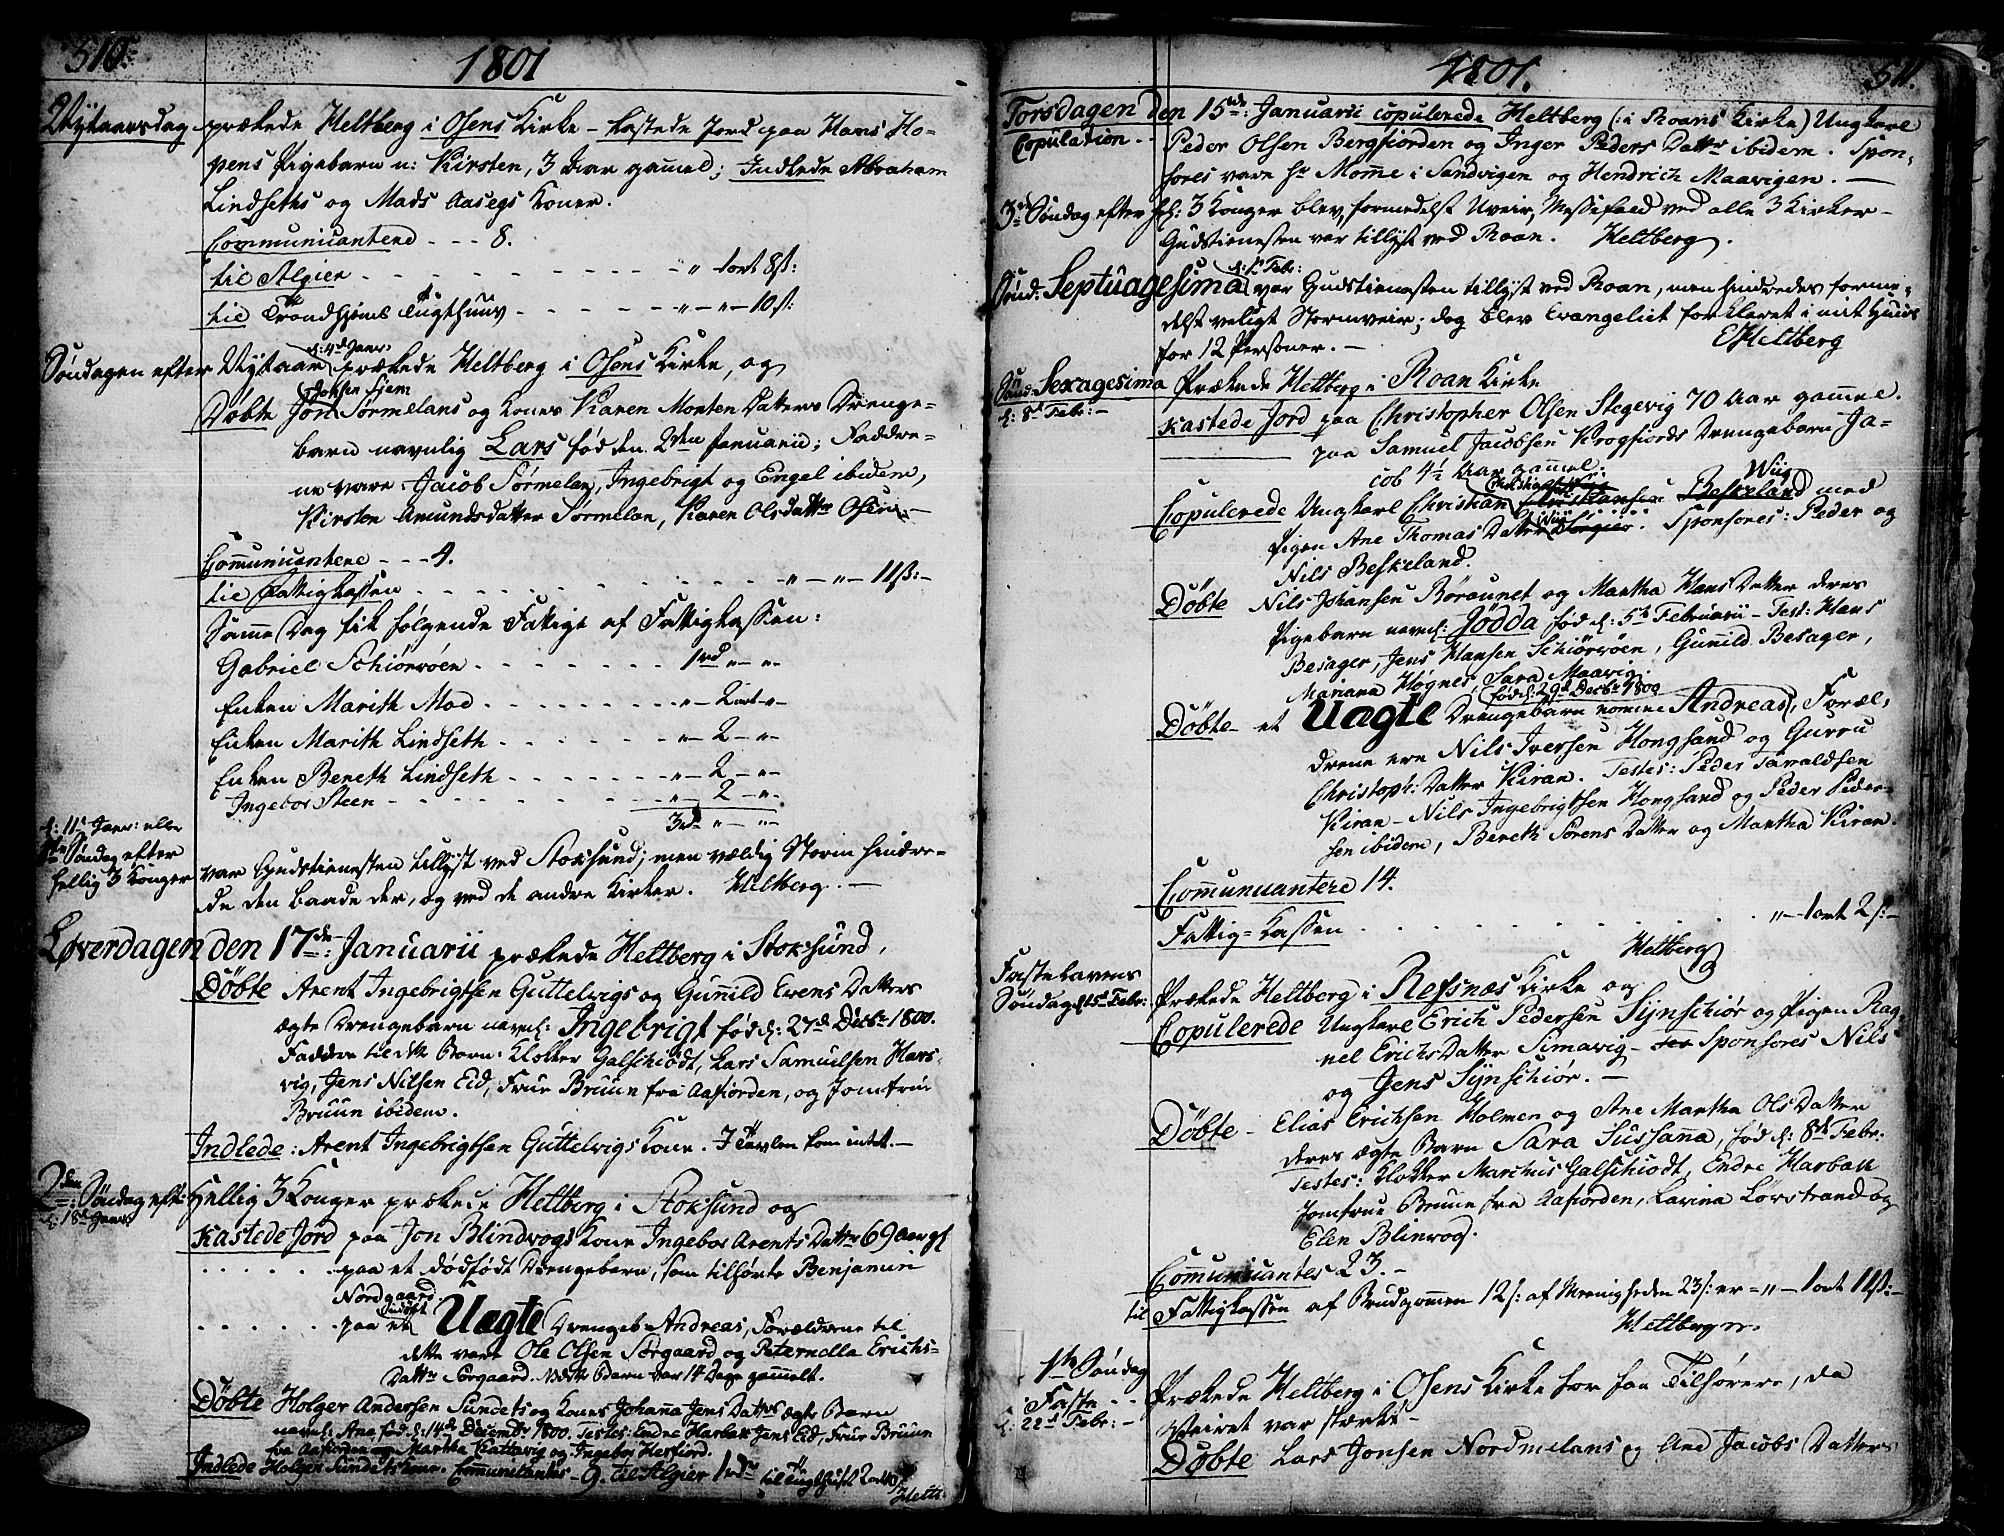 510.
1801
Nytaarsdag prækede Heltberg i Osens Kirke - kastede Jord paa Hans Ho-
pens Pigebarn n: Kirsten, 3 Aar gam̄el; Indlede Abraham
Lindseths og Mads Aasegs Koner.
Communicantere - - - 8.
til Algier - - - " 1 ort 8 s:
til Trondhiems Tugthuus - - - " - " - 10 s:
Søndagen efter Nytaar d: 4de Janr: prækede Heltberg i Osens Kirke, og
Døbte Jon Sørmelans og Kones Karen Morten Datters Drenge-
barn navnlig Lars fød den 2den Januarii; Faddre-
ne vare Jacob Sørmelan, Ingebrigt og Engel ibidem,
Kirsten Amundsdatter Sørmelan, Karen Olsdattr Osen. -
Com̄unicantere - - - 4.
til Fattigkassen - - - " - " - 11 s: -
Sam̄e Dag fik følgende Fattige af Fattigkassen:
Gabriel Schiørvøen - - - 1 rd " - " -
Enken Marith Mod - - - " - 2 ort - " -
Enken Marith Lindseth - - - " - 2 - " -
Enken Bereth Lindseth - - - " - 2 - " -
Ingebor Steen - - - " - 2 - " -
3 rd " - " -
d: 11te Janr: eller
1te Søndag efter
hellig 3 Konger var Gudstienesten tillyst ved Stoksund; men vældig Storm hindre-
de den baade der, og ved de andre Kirker. Heltberg. -
Løverdagen den 17de Januarii prækede Heltberg i Stoksund,
Døbte Arent Ingebrigtsen Guttelvigs og Gun̄ild Evens Datters
ægte Drengebarn navnl: Ingebrigt fød d: 27de Decbr 1800.
Faddre til dte Barn: Klokker Galschiødt, Lars Samuelsen Hars-
vig, Jens Nilsen Eid, Frue Bruun fra Aafiorden, og Jomfrue
Bruun ibidem.
Indlede: Arent Ingebrigtsen Guttelvigs Kone. I Tavlen kom intet. -
2den Søndag eft: Hellig 3 Konger prækede Heltberg i Stoksund og
d: 18de Janr:
Kastede Jord paa Jon Blindvogs Kone Ingebor Arents Dattr 69 Aar gl
. . . . . paa et dødfødt Drengebarn, som tilhørte Benjamin
Nordgaard.
. . . . . paa et Uægte Drengeb. Andreas, Forældrene til
dette vare Ole Olsen Sørgaard og Peternella Erichs-
Dattr Sørgaard. Barn var 14 Dage gam̄elt.
Døbte Holger Andersen Sundets og Kones Johan̄a Jens Datters ægte Barn
navnl: Ane fød d: 14de Decembr 1800. Testes: Endre Harbak Jens Eid, Frue Bruun
fra Aafiorden og Martha Kattavig og Ingebor Herfiord.
Indlede Holger Sundets Kone. Com̄unicantes - 9. til Algier 1 rd til Tugthuset 2 ort
Heltb.
1801.
511.
Torsdagen den 15de Januarii copulerede Heltberg (: i Roans Kirke) Ungkarl
Copulation - - Peder Olsen Bergfiorden og Inger Peders Dattr ibidem. Spon-
sores vare Hr Mom̄e i Sandvigen og Hendrich Maavigen. -
3die Søndag efter H: 3 Konger blev, formedelst Uveir, Messefald ved alle 3 Kirker -
Gudstienesten var tillyst ved Roan. Heltberg.
Sønd: Septuagesima d: 1te Febr: var Gudstienesten tillyst ved Roan, men hindredes forme-
delst veligt Stormveir; dog blev Evangeliet forklaret i mit Huus
for 12 Personer. -
EHeltberg
Sønd: Sexagesima Prækede Heltberg i Roan Kirke
d: 8de Febr: -
kastede Jord paa Christopher Olsen Stegevig 70 Aar gam̄el.
paa Samuel Jacobsen Krogfiords Drengebarn Ja-
cob 4½ Aar gam̄el.
Copulerede Ungkarl Christian Beskeland Wiig med
Pigen Ane Thomas Datter Wiig. Sponsores: Peder og
Nils Beskeland.
Døbte Nils Johansen Børøunet og Martha Hans Datter deres
Pigebarn navnl: Jødda fød d: 5te Februarii - Test: Hans
Besager, Jens Hansen Schiørvøen, Gun̄ild Besager,
Mariana Hogner, Sara Maavig.
fød d: 29de Decbr 1800
Døbte - et Uægte Drengebarn nomine Andreas, Foræl-
drene ere Nils Iversen Hongsand og Gurru
Christoph: Datter Kiran. Testes: Peder Taraldsen
Kiran - Nils Ingebrigtsen Hongsand og Peder Peder-
sen ibidem, Bereth Sørens Datter og Martha Kiran.
Com̄unicantere 14.
Fattig-Kassen - - - " - 1 ort 2 s: -
Heltberg
Fastelavens
Søndag d: 15de Febr: Prækede Heltberg i Refsnæs Kirke og
Copulerede Ungkarl Erich Pedersen Sijnschiør og Pigen Rag-
nel Erichs Datter Simavig - Sponsores Nils
og Jens Sijnschiør. -
Døbte - Elias Erichsen Holmen og Ane Martha Ols Datter
deres ægte Barn Sara Sussan̄a, fød d: 8de Febr:
Testes: Klokker Marchus Galschiødt, Endre Harbak
Jomfrue Bruun fra Aafiorden, Lavina Lørstrand og
Elen Blinvog.
Com̄unicantes 23. -
til Fattigkassen af Brudgom̄en 12 s: af Menigheden 23 s: er = " - 1 ort 11 s: -
Heltberg
1te Søndag
i Faste - - Prækede Heltberg i Osens Kirke for faa Tilhørere, da
d: 22de Febr: -
Veiret var stærkt -
Døbte Lars Jonsen Nordmelans og Ane Jacobs Datters